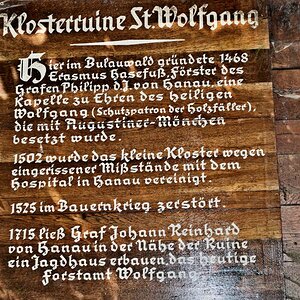 Klosterruine St Wolfgang
Hier im Bulauwald gründete 1468
Erasmus Hasefuß, Förster des
Grafen Philipp d.J. von Hanau, eine
Kapelle zu Ehren des Heiligen
Wolfgang (Schutzpatron der Holzfäller),
die mit Augustiner-Mönchen
besetzt wurde.
1502 wurde das kleine Kloster wegen
eingerissener Mißstände mit dem
Hospital in Hanau vereinigt.
1525 im Bauernkrieg zerstört.
1715 ließ Graf Johann Reinhard
von Hanau in der Nähe der Ruine
ein Jagdhaus erbauen, das heutige
Forstamt Wolfgang.